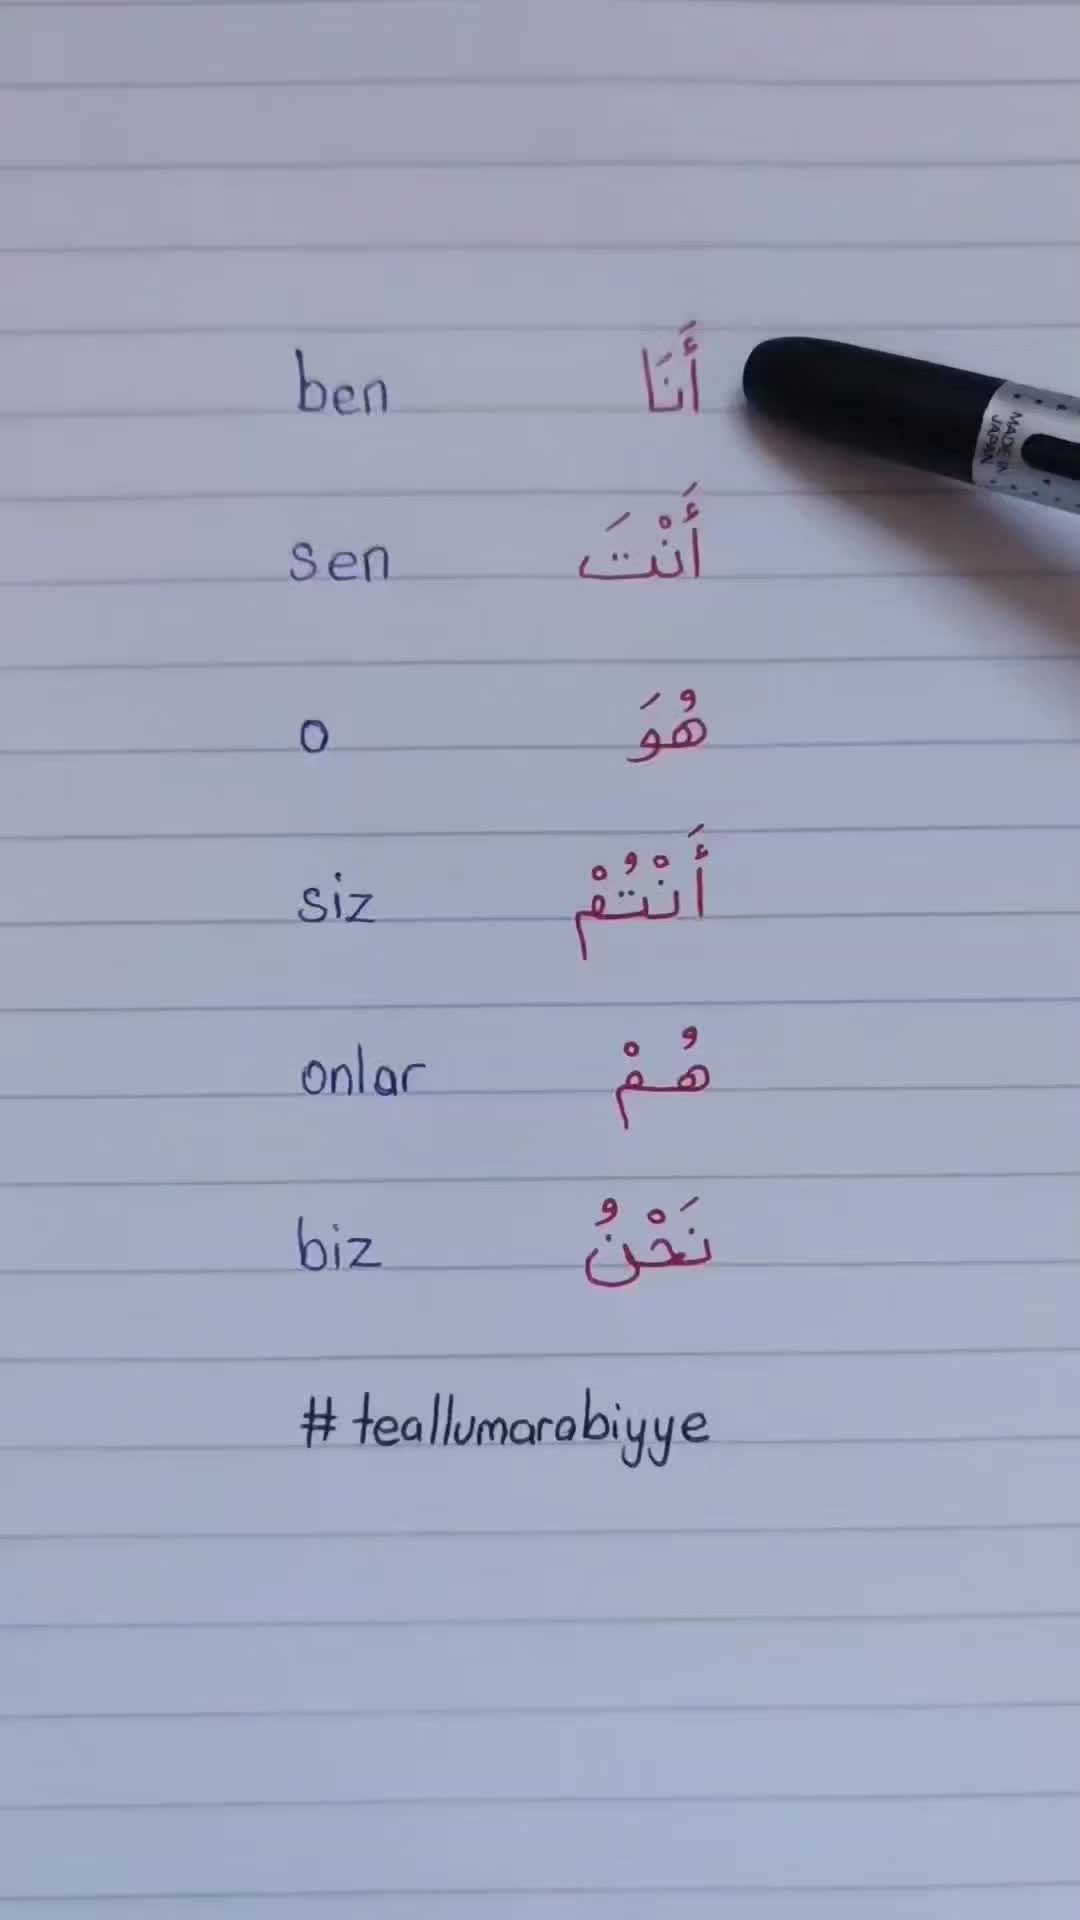 ben أَنَا
sen أَنْتَ
o هُوَ
siz أَنْتُمْ
onlar هُمْ
biz نَحْنُ
#teallumarabiyye
MADE IN
JAPAN